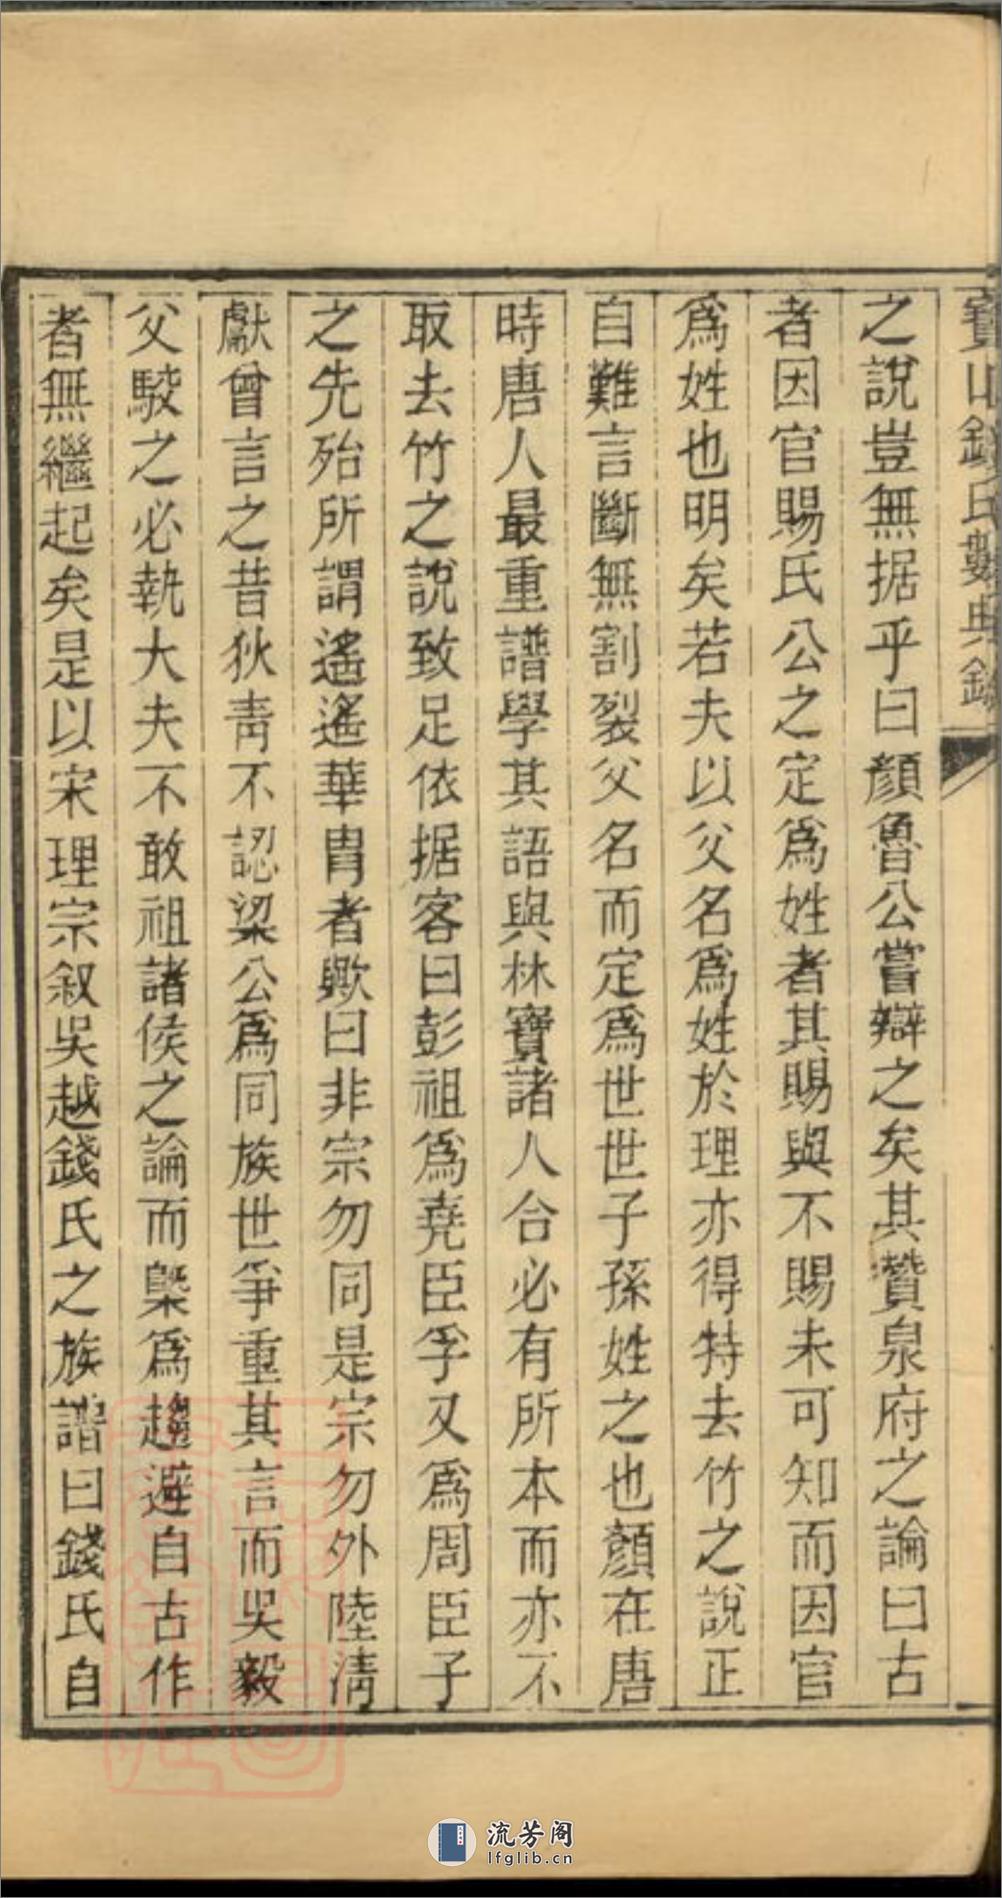 寶山錢氏數典錄
之說豈無据乎曰顏魯公嘗辯之矣其贊泉府之論曰古
者因官賜氏公之定爲姓者其賜與不賜未可知而因官
爲姓也明矣若夫以父名爲姓於理亦得特去竹之說正
自難言斷無割裂父名而定爲世世子孫姓之也顏在唐
時唐人最重譜學其語與林寶諸人合必有所本而亦不
取去竹之說致足依据客曰彭祖爲堯臣孚又爲周臣子
之先殆所謂遙遙華胄者歟曰非宗勿同是宗勿外陸淸
獻曾言之昔狄靑不認梁公爲同族世爭重其言而吳毅
父駿之必執大夫不敢祖諸侯之論而槩爲趨避自古作
者無繼起矣是以宋理宗叙吳越錢氏之族譜曰錢氏自
流芳阁
lfglib.cn